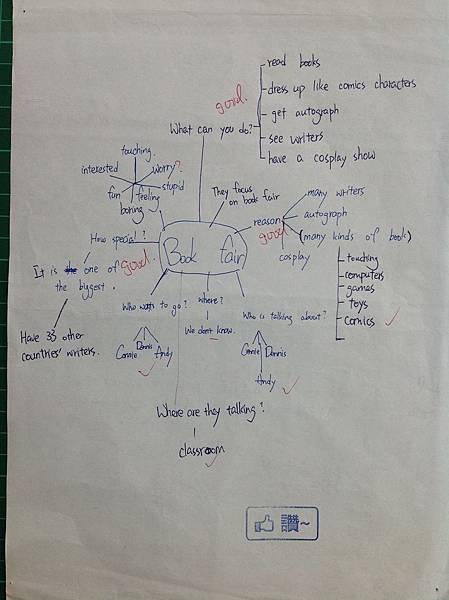 good.
What can you do?
read books
dress up like comics characters
get autograph
see writers
have a cosplay show
touching
interested
worry?
fun
feeling
stupid
boring
They focus
on book fair
reason
good
many writers
autograph
(many kinds of book)
cosplay
touching
computers
games
toys
comics
How special?
good.
It is the one of
the biggest.
Have 33 other
countries' writers.
Book fair
Who wants to go?
Connie
Dennis
Andy
Where?
We don't know.
Who is talking about?
Connie
Dennis
Andy
Where are they talking?
classroom
讚~